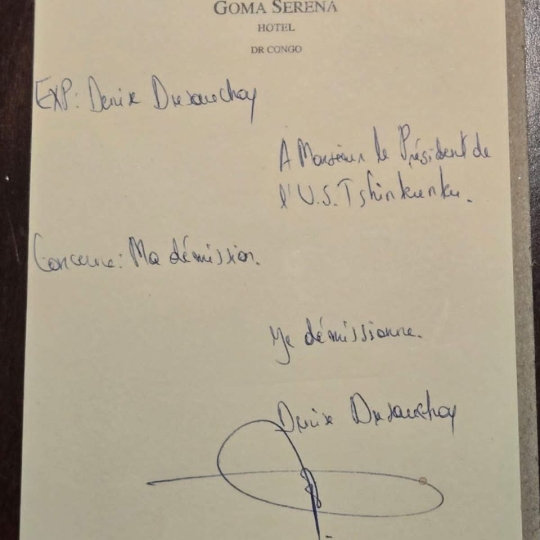 GOMA SERENA
HOTEL
DR CONGO
EXP: Denise Dusauchoy
A Monsieur le Président de
l'U.S. Tshinkunku.
Concerne: Ma démission.
Je démissionne.
Denise Dusauchoy